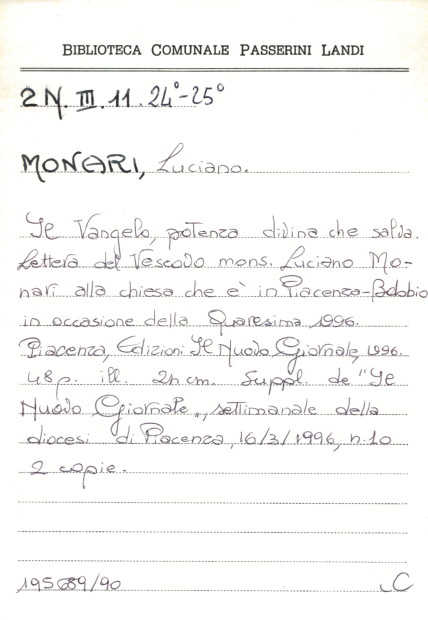 BIBLIOTECA COMUNALE PASSERINI LANDI
2 N. III. 11. 24°-25°
MONARI, Luciano.
Il Vangelo, potenza divina che salva.
Lettera del Vescovo mons. Luciano Mo-
nari alla chiesa che è in Piacenza-Bobbio
in occasione della Quaresima 1996.
Piacenza, Edizioni Il Nuovo Giornale, 1996.
48 p. ill. 21 cm. Suppl. de "Il
Nuovo Giornale", settimanale della
diocesi di Piacenza, 16/3/1996, n. 10
2 copie.
195689/90
C